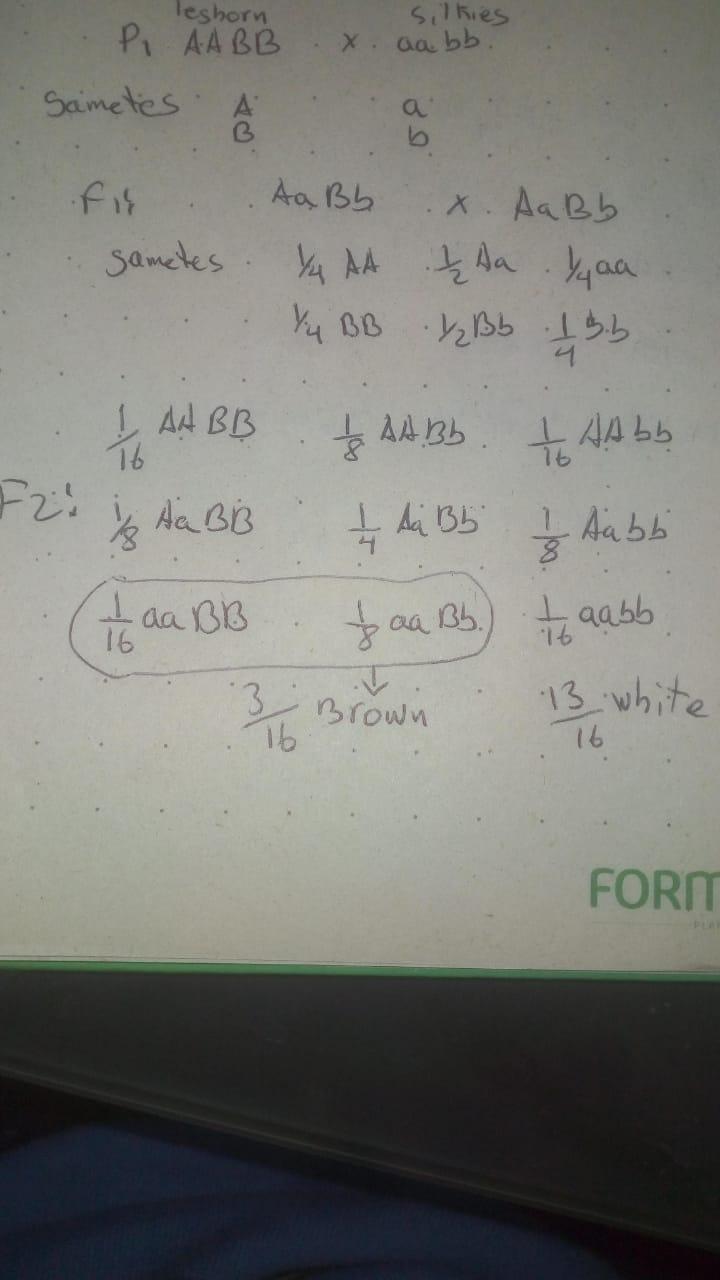 lesborn silkies
P1 AABB x aabb.
Sametes A a
B b
F1: AaBb x AaBb
Sametes 1/4 AA 1/2 Aa 1/4 aa
1/4 BB 1/2 Bb 1/4 bb
1/16 AABB 1/8 AABb 1/16 AAbb
F2: 1/8 AaBB 1/4 AaBb 1/8 Aabb
1/16 aaBB 1/8 aaBb 1/16 aabb
3/16 Brown 13/16 white